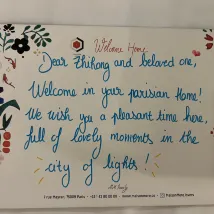 Welcome Home
Dear Zhihong and beloved one,
Welcome in your parisian Home!
We wish you a pleasant time here,
full of lovely moments in the
city of lights !